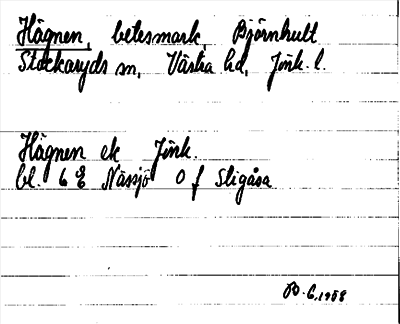 Hägnen, betesmark, Björnhult
Stockaryds sn, Västra hd, Jönk. l.
Hägnen ek Jönk.
bl. 6 E Nässjö 0 f Stigåsa
B. C. 1958